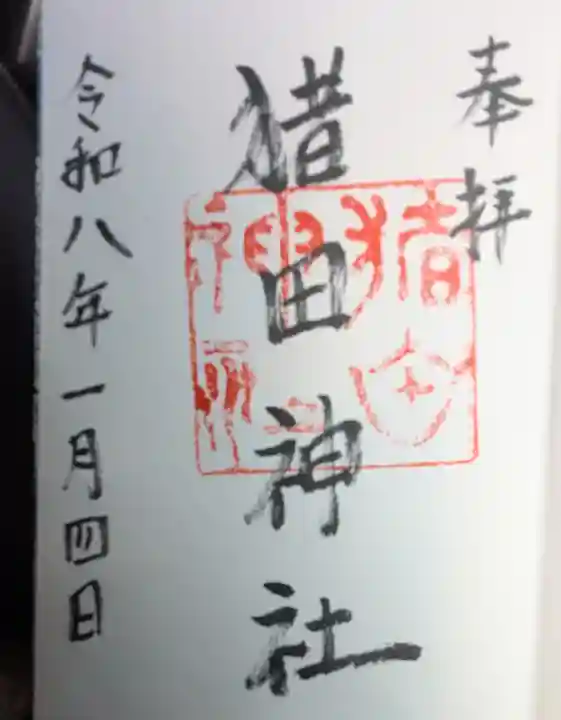 奉拝
猪田神社
令和八年一月四日